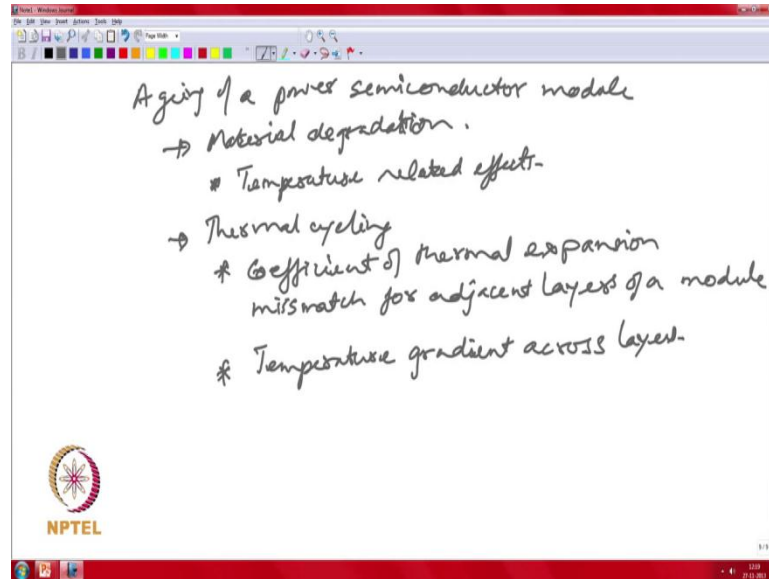 Note1 - Windows Journal
File Edit View Insert Actions Tools Help
Page Width
B I
Ageing of a power semiconductor module
→ Material degradation.
* Temperature related effects.
→ Thermal cycling
* Coefficient of thermal expansion
mismatch for adjacent layers of a module
* Temperature gradient across layers.
NPTEL
9/9
12:19
27-11-2013